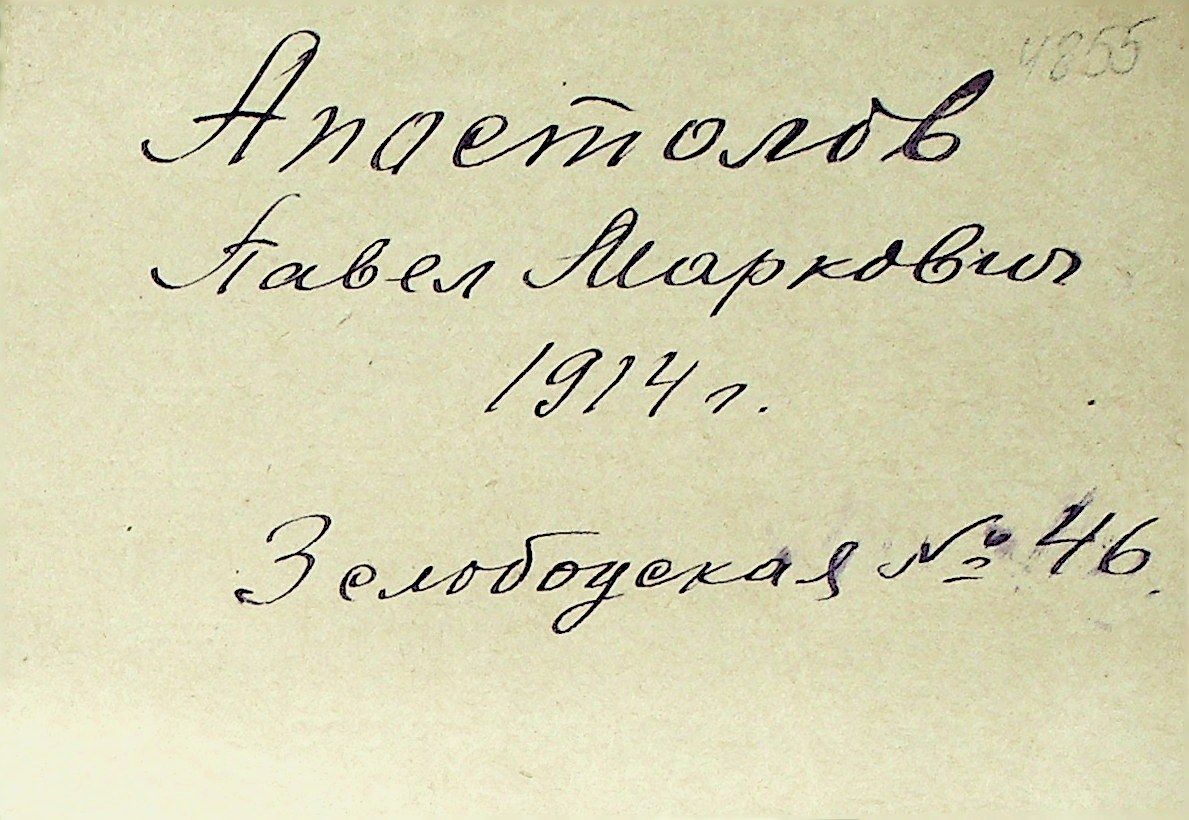 4855
Апостолов
Павел Маркович
1914 г.
3 слободская № 46.